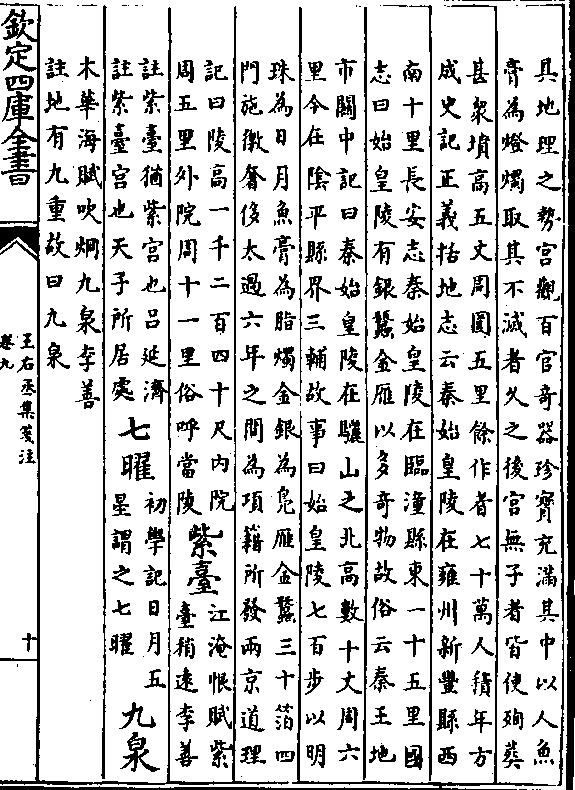 具地理之勢宫觀百官奇器珍寶充滿其中以人魚
膏為燈燭取其不滅者久之後宫無子者皆使殉葬
甚衆墳高五丈周圍五里餘作者七十萬人積年方
成史記正義括地志云秦始皇陵在雍州新豐縣西
南十里長安志秦始皇陵在臨潼縣東一十五里國
志曰始皇陵有銀蠶金雁以多奇物故俗云秦王地
市闗中記曰秦始皇陵在驪山之北高數十丈周六
里今在陰平縣界三輔故事曰始皇陵七百步以明
珠為日月魚膏為脂燭金銀為鳬雁金蠶三十箔四
門施徼奢侈太過六年之間為項籍所發兩京道理
記曰陵高一千二百四十尺内院
周五里外院周十一里俗呼當陵
紫臺
江淹恨賦紫
臺稍逺李善
註紫臺猶紫宫也吕延濟
註紫臺宫也天子所居處
七曜
初學記日月五
星謂之七曜
九泉
木華海賦吹烱九泉李善
註地有九重故曰九泉
欽定四庫全書
王右丞集箋注
卷九
十